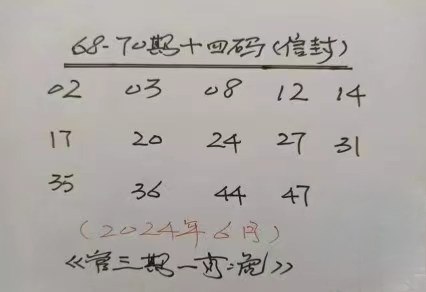 68-70期十四码(信封)
02 03 08 12 14
17 20 24 27 31
35 36 44 47
(2024年6月)
《管三期一